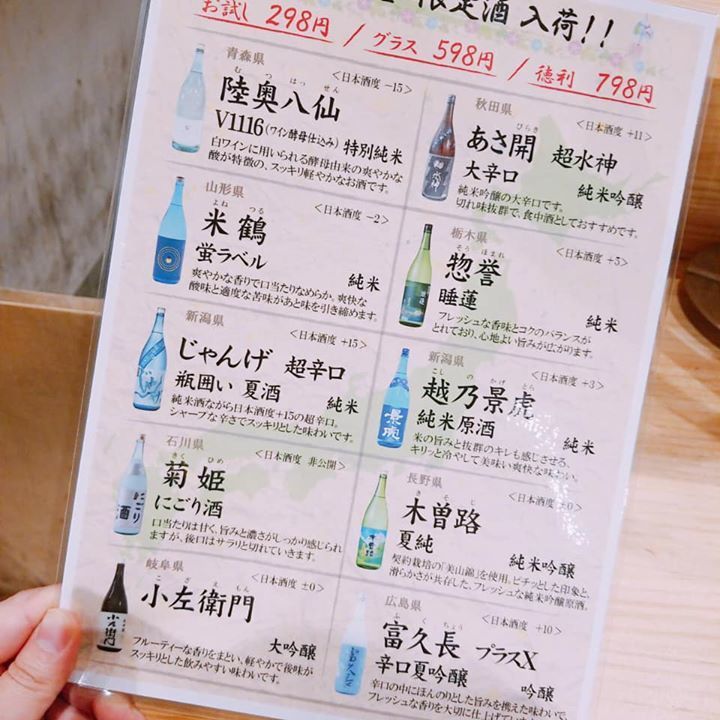 限定酒 入荷!!
お試し 298円 / グラス 598円 / 徳利 798円
青森県
<日本酒度 −15>
むつはっせん
陸奥八仙
V1116 (ワイン酵母仕込み) 特別純米
白ワインに用いられる酵母由来の爽やかな
酸が特徴の、スッキリ軽やかなお酒です。
山形県
<日本酒度 −2>
よねつる
米鶴
蛍ラベル
純米
爽やかな香りで口当たりなめらか。爽快な
酸味と適度な苦味があと味を引き締めます。
新潟県
<日本酒度 +15>
じゃんげ 超辛口
瓶囲い 夏酒
純米
純米酒ながら日本酒度+15の超辛口。
シャープな辛さでスッキリとした味わいです。
石川県
<日本酒度 非公開>
きくひめ
菊姫
にごり酒
口当たりは甘く、旨みと濃さがしっかり感じられ
ますが、後口はサラリと切れていきます。
岐阜県
<日本酒度 ±0>
こざえもん
小左衛門
大吟醸
フルーティーな香りをまとい、軽やかで後味が
スッキリとした飲みやすい味わいです。
秋田県
<日本酒度 +11>
びらき
あさ開 超水神
大辛口
純米吟醸
純米吟醸の大辛口です。
切れ味抜群で、食中酒としておすすめです。
栃木県
<日本酒度 +5>
そうほまれ
惣誉
睡蓮
純米
フレッシュな香味とコクのバランスが
とれており、心地よい旨みが広がります。
新潟県
<日本酒度 +3>
こしのかげとら
越乃景虎
純米原酒
純米
米の旨みと抜群のキレも感じさせる、
キリッと冷やして美味い爽快な味わい。
長野県
<日本酒度 ±0>
きそじ
木曽路
夏純
純米吟醸
契約栽培の「美山錦」を使用。ピチッとした印象と、
滑らかさが共存した、フレッシュな純米吟醸原酒。
広島県
<日本酒度 +10>
ふくちょう
富久長 プラスX
辛口夏吟醸
吟醸
辛口の中にほんのりとした旨みを携えた味わいで、
フレッシュな香りを大切に仕上げて